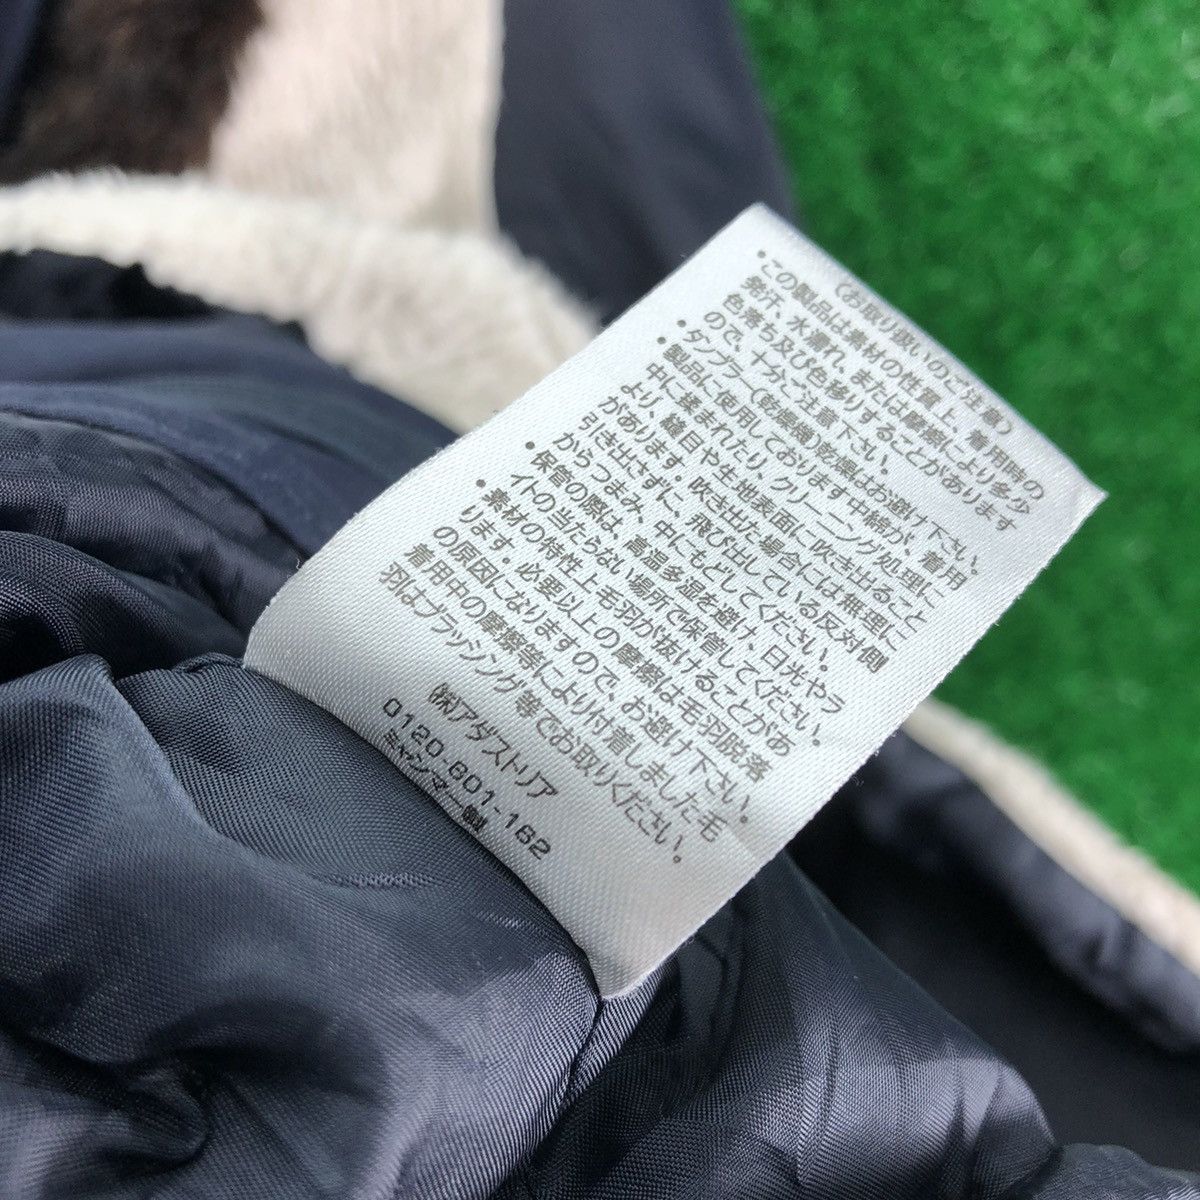 〈お取り扱いのご注意〉
・この製品は素材の性質上、着用時の
発汗、水濡れ、または摩擦により多少
色落ち及び色移りすることがあります
ので、十分ご注意下さい。
・タンブラー(乾燥機)乾燥はお避け下さい。
・製品に使用しております中綿が、着用
中に揉まれたり、クリーニング処理に
より、縫目や生地表面に吹き出ること
があります。吹き出た場合には無理に
引き出さずに、飛び出している反対側
からつまみ、中にもどしてください。
・保管の際は、高温多湿を避け、日光やラ
イトの当たらない場所で保管してください。
・素材の特性上、毛羽が抜けることがあ
ります。必要以上の摩擦は毛羽脱落
の原因になりますので、お避け下さい。
着用中の摩擦等により付着しました毛
羽はブラッシング等でお取りください。
㈱アダストリア
0120-601-162
ミャンマー製